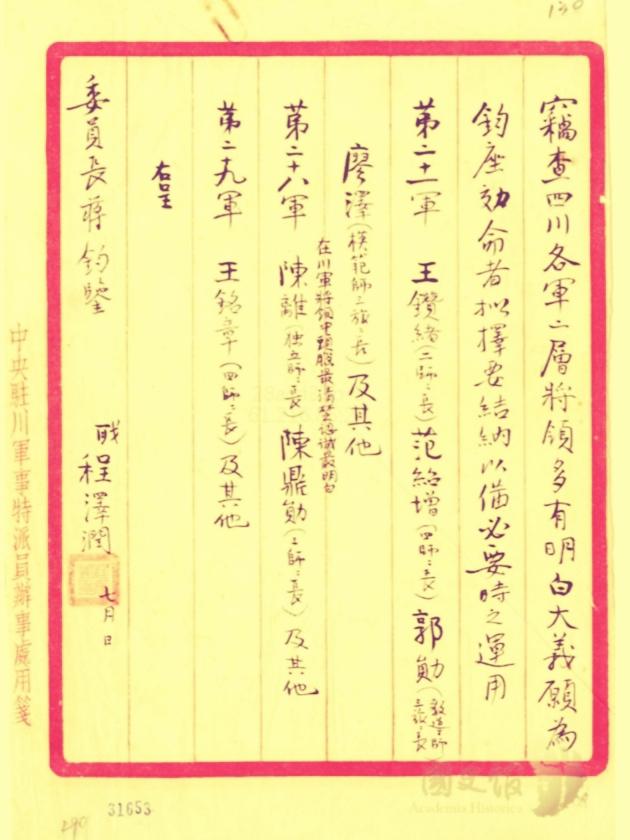 130
竊查四川各軍二層將領多有明白大義願為
鈞座効命者拟擇要結納以備必要時之運用
第二十一軍 王鑽緒(二師〻長)范紹增(四師〻長)郭勛(教導師三旅〻長)
廖澤(模範師三旅〻長)及其他
在川軍將領中頭腦最清楚認識最明白
第二十八軍 陳離(独立師〻長)陳鼎勛(二師〻長)及其他
第二九軍 王銘章(四師〻長)及其他
右呈
委員長蔣 鈞鑒
職 程澤潤
七月 日
中央駐川軍事特派員辦事處用箋
31653
290
國史館
Academia Historica